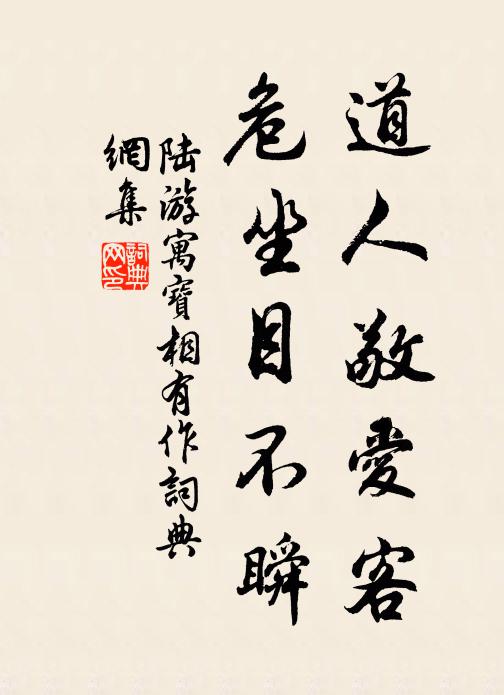 道人敬愛客
危坐目不瞬
陆游寓寶相有作詞典
網集
詞典網印